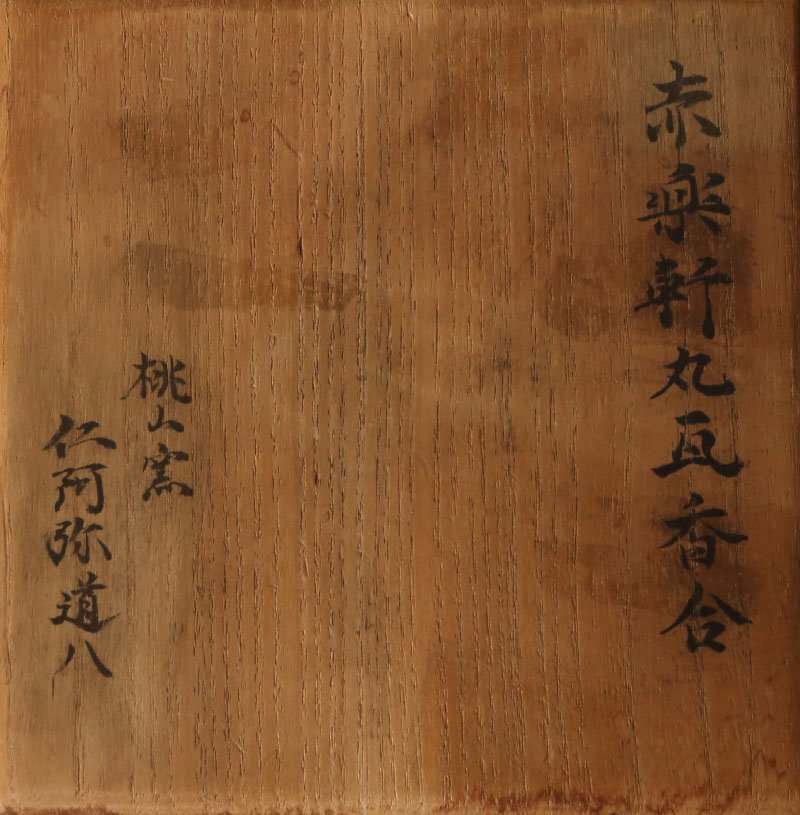 赤楽軒丸瓦香合
桃山窯
仁阿弥道八